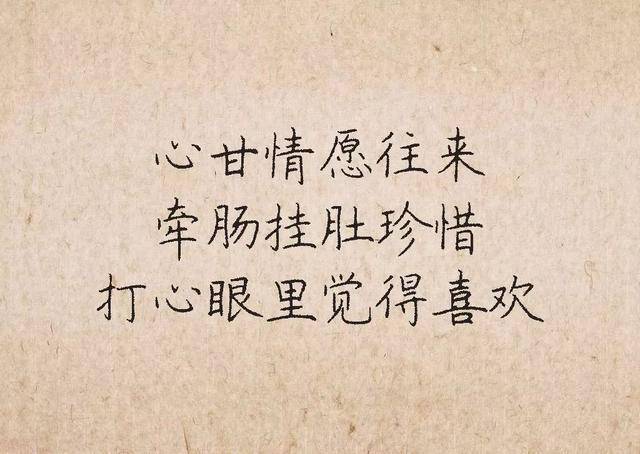 心甘情愿往来
牵肠挂肚珍惜
打心眼里觉得喜欢